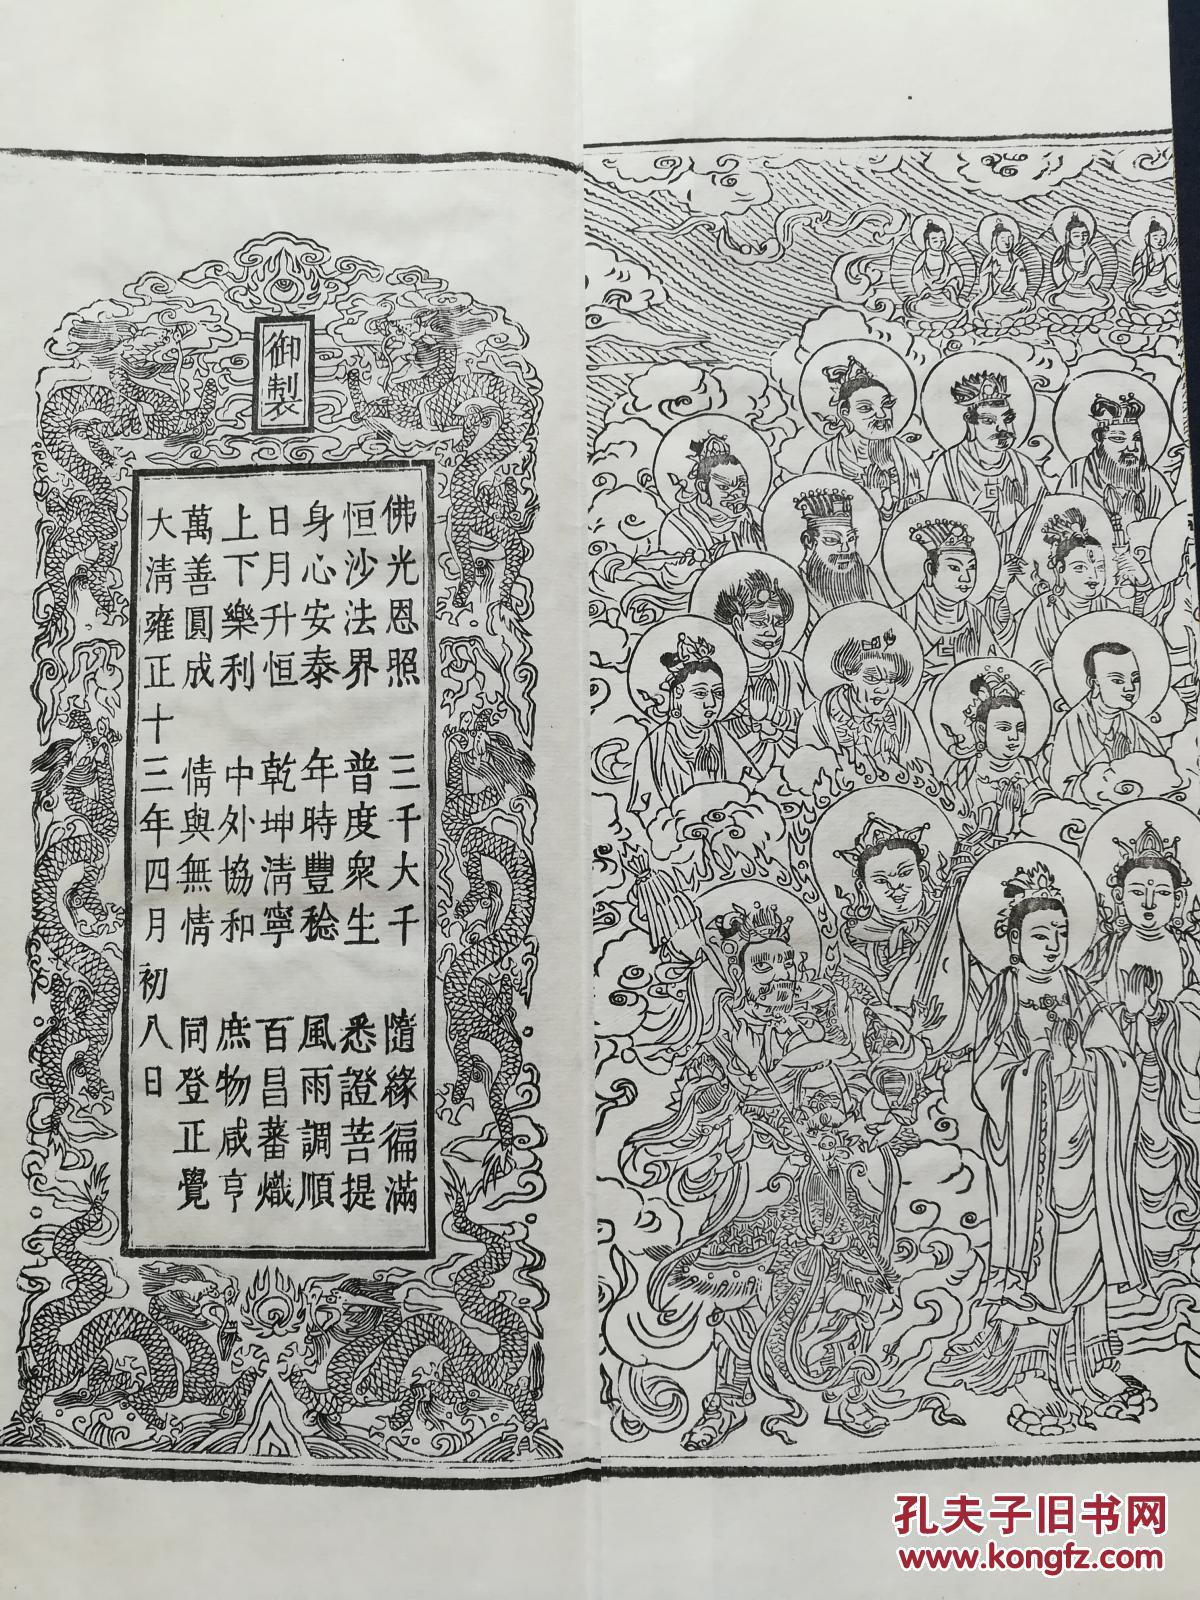 御製
佛光恩照　三千大千　隨緣徧滿
恒沙法界　普度衆生　悉證菩提
身心安泰　年時豐稔　風雨調順
日月升恒　乾坤清寧　百昌蕃熾
上下樂利　中外協和　庶物咸亨
萬善圓成　情與無情　同登正覺
大清雍正十三年四月初八日
孔夫子旧书网
www.kongfz.com